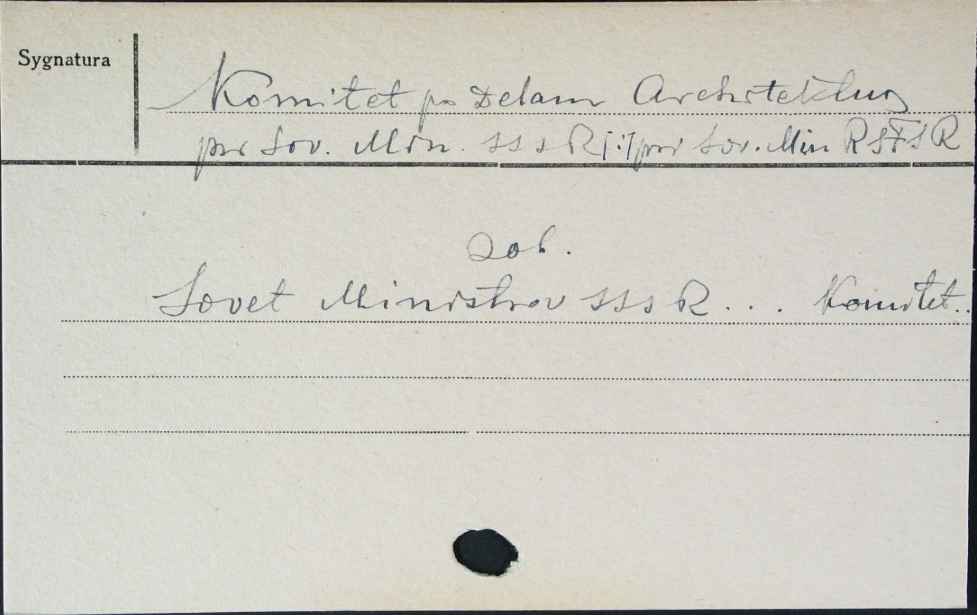 Sygnatura
Komitet po Delam Architektury
pri Sov. Min. SSSR [:] pri Sov. Min RSFSR
Zob.
Sovet Ministrov SSSR... Komitet..